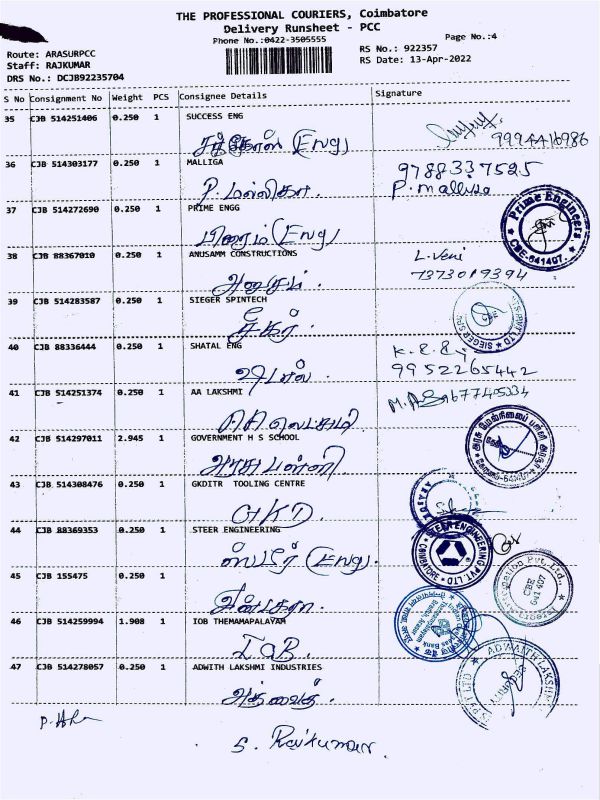 THE PROFESSIONAL COURIERS, Coimbatore
Delivery Runsheet - PCC
Phone No.:0422-3505555
Page No.:4
Route: ARASURPCC
RS No.: 922357
Staff: RAJKUMAR
RS Date: 13-Apr-2022
DRS No.: DCJB92235704
S No Consignment No Weight PCS Consignee Details Signature
35 CJB 514251406 0.250 1 SUCCESS ENG
(Eng) 9994416986
36 CJB 514303177 0.250 1 MALLIGA
9788337525
P. மல்லிகா P. malliga
37 CJB 514272690 0.250 1 PRIME ENGG
பிரைம் (Eng) Prime Engineers CBE-641407.
38 CJB 88367010 0.250 1 ANUSAMM CONSTRUCTIONS
L. Veni
7373019394
39 CJB 514283587 0.250 1 SIEGER SPINTECH
40 CJB 88336444 0.250 1 SHATAL ENG
9952265442
41 CJB 514251374 0.250 1 AA LAKSHMI
42 CJB 514297011 2.945 1 GOVERNMENT H S SCHOOL
அரசு பள்ளி
43 CJB 514308476 0.250 1 GKDITR TOOLING CENTRE
GKD.
44 CJB 88369353 0.250 1 STEER ENGINEERING
ஸ்டீர் (Eng). STEER ENGINEERING PVT. LTD COIMBATORE
45 CJB 155475 0.250 1
CBE 641 407
46 CJB 514259994 1.908 1 IOB THEMAMAPALAYAM
IOB.
47 CJB 514278057 0.250 1 ADWITH LAKSHMI INDUSTRIES
அத்வைத்.
S. Rajkumar.